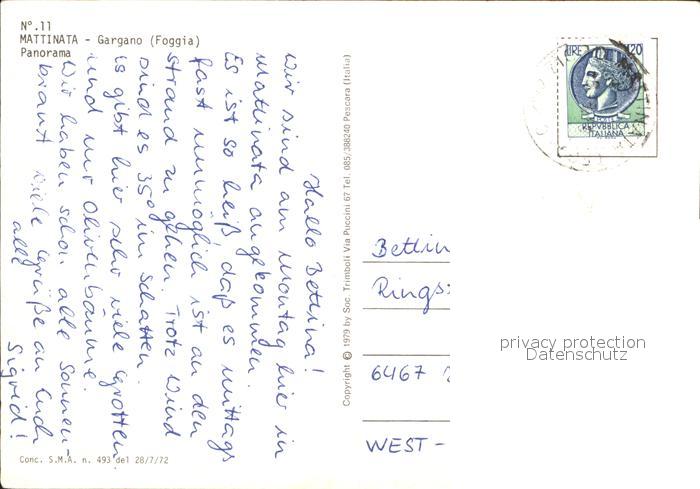 N°.11
MATTINATA - Gargano (Foggia)
Panorama
Hallo Bettina!
Wir sind am Montag hier in
Mattinata angekommen.
Es ist so heiß daß es mittags
fast unmöglich ist an den
Strand zu gehen. Trotz Wind
sind es 35° im Schatten.
Es gibt hier sehr viele Grotten
und nur Olivenbäume.
Wir haben schon alle Sonnen-
brant Viele Grüße an Euch
alle Sigrid!
Conc. S.M.A. n. 493 del 28/7/72
Copyright © 1979 by Soc. Trimboli Via Puccini 67 Tel. 085/388240 Pescara (Italia)
LIRE 120
REPVBBLICA
ITALIANA
Bettin
Rings
6467
WEST-
privacy protection
Datenschutz